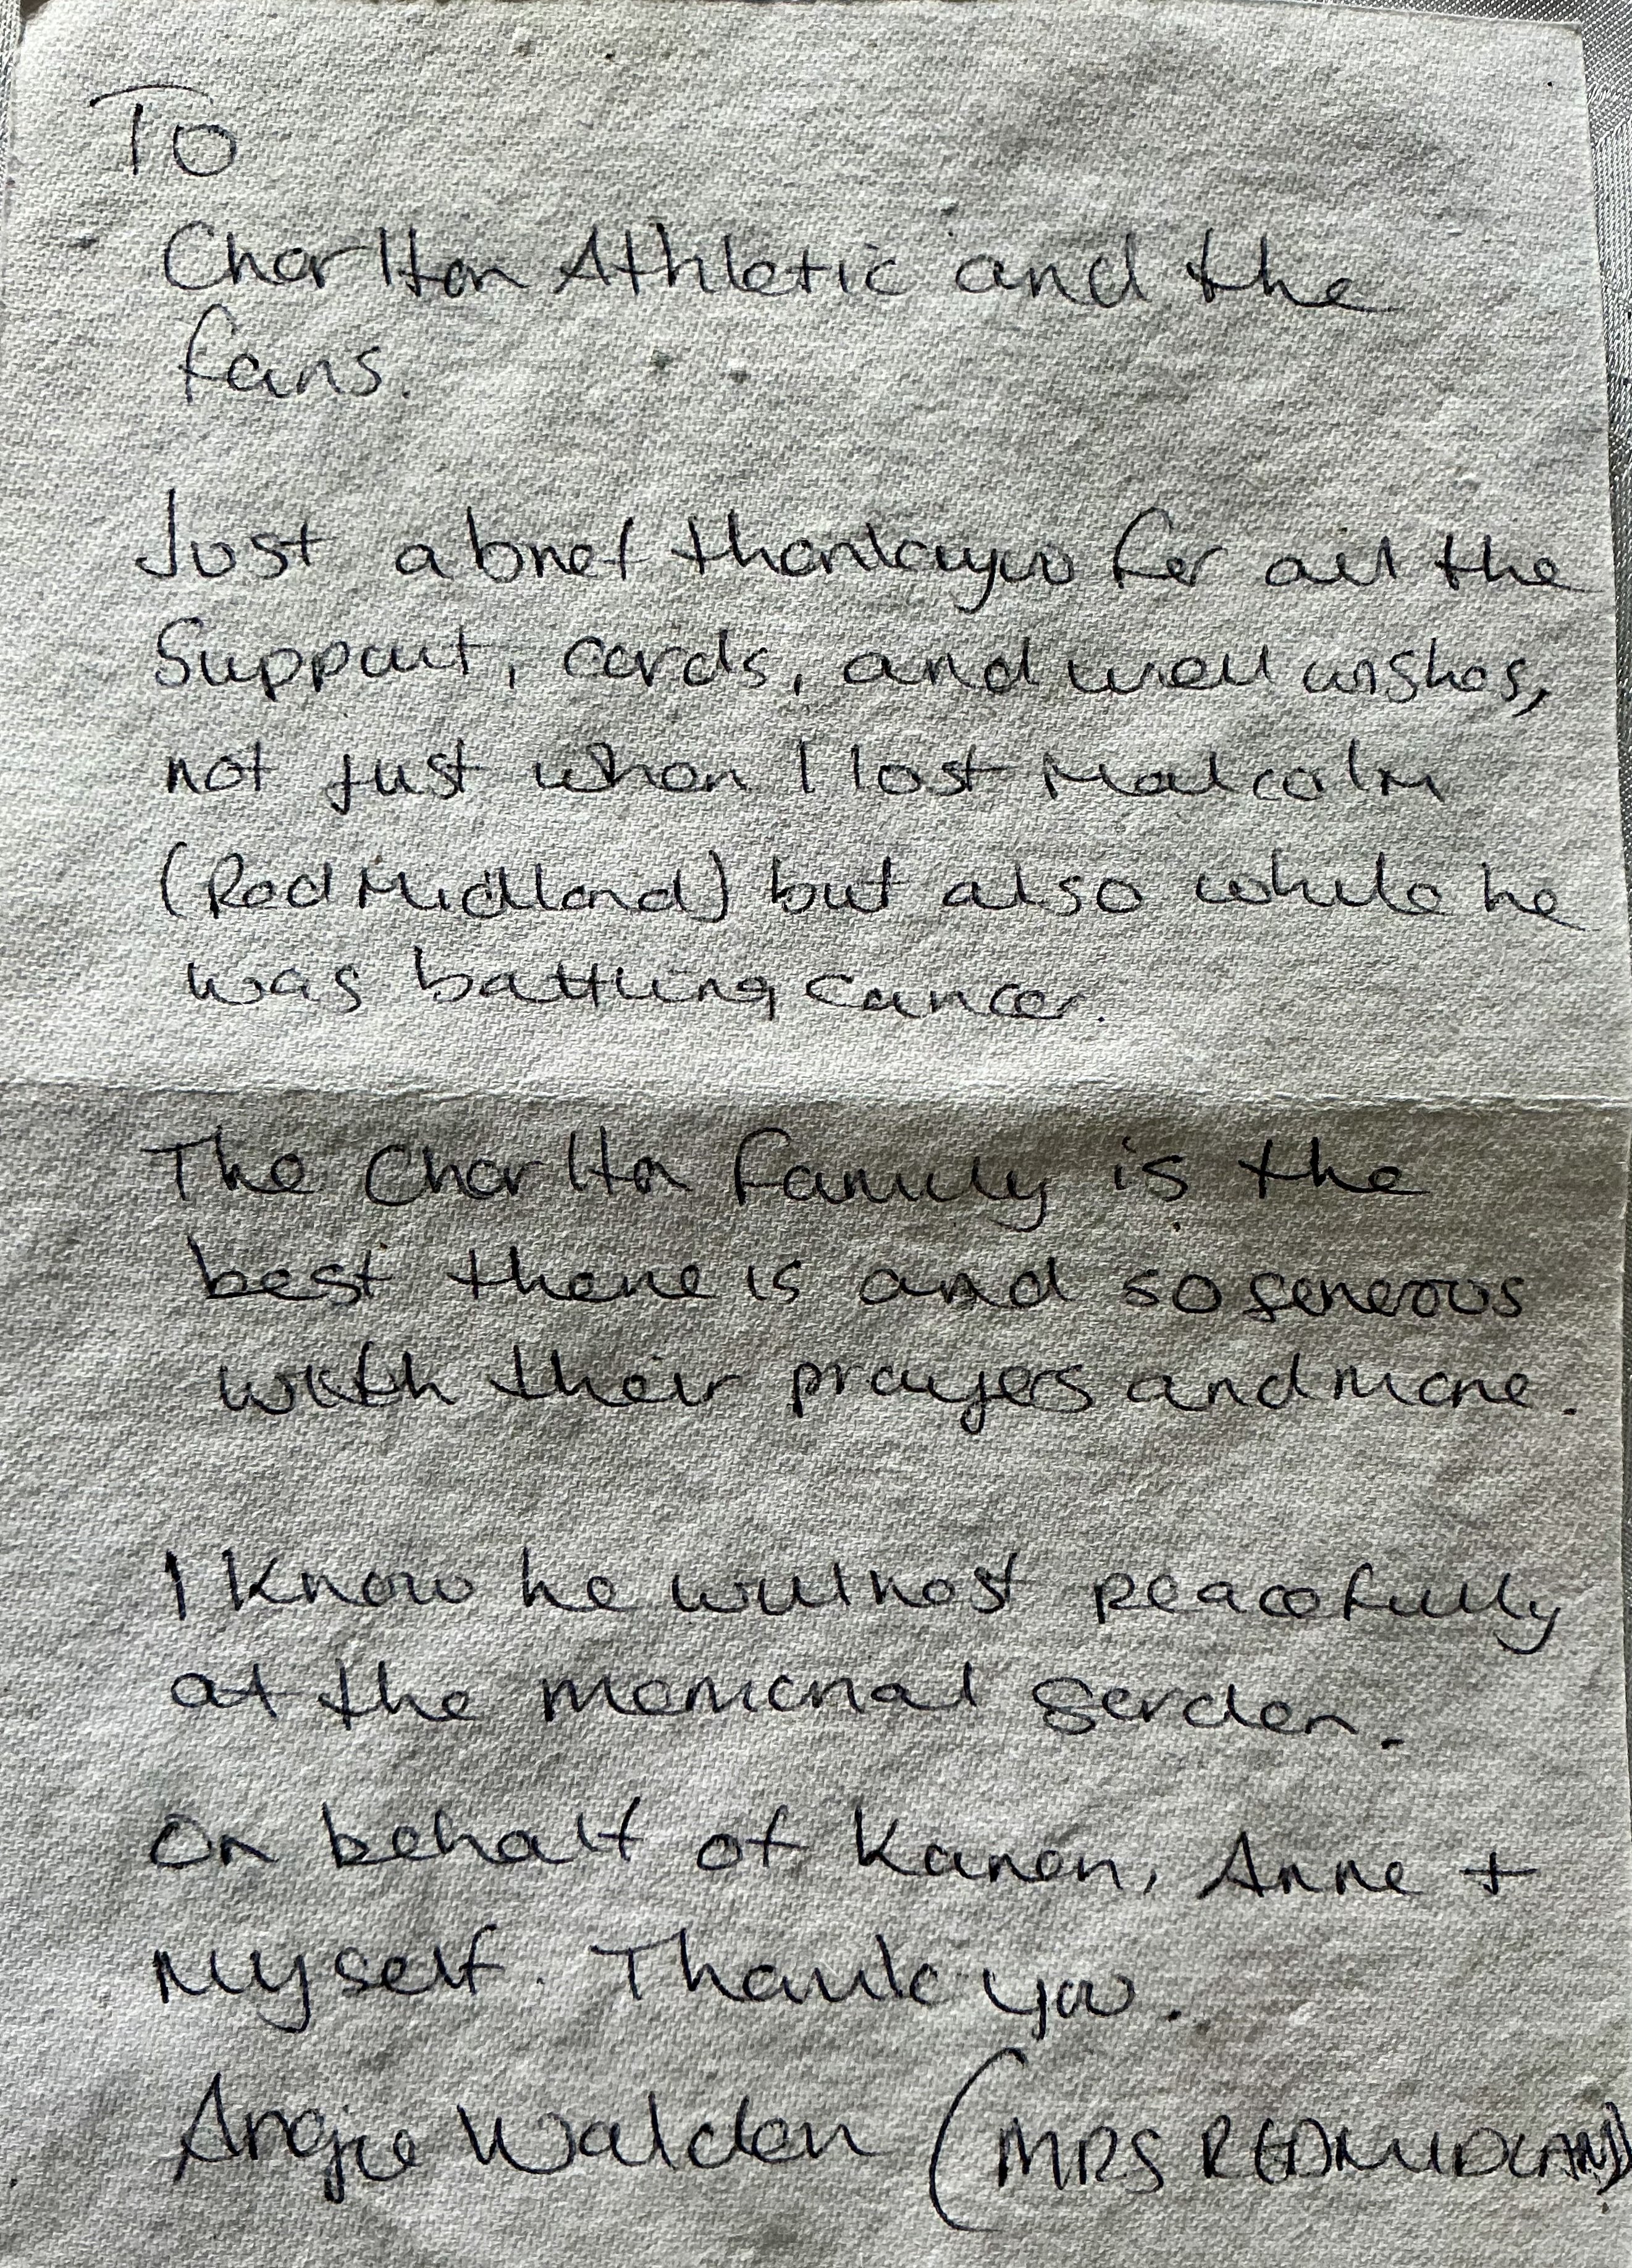 To
Charlton Athletic and the
fans.
Just a brief thankyou for all the
Support, cards, and well wishes,
not just when I lost Malcolm
(Red Midland) but also while he
was battling cancer.
The Charlton family is the
best there is and so generous
with their prayers and more.
I know he will rest peacefully
at the memorial garden.
On behalf of Karen, Anne +
Myself. Thank you.
Angie Walden (MRS REDMIDLAND)